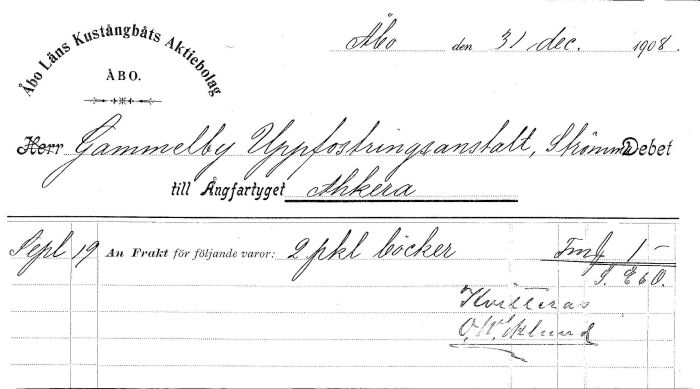 Åbo Läns Kustångbåts Aktiebolag
ÅBO.
Åbo den 31 dec. 1908.
Herr Gammelby Uppfostringsanstalt, Strömma Debet
till Ångfartyget Ahkera
Sept 19 An Frakt för följande varor: 2 pkl böcker Fmk 1 -
S. E & O.
Kvitteras